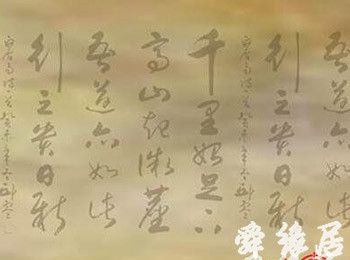 吾道亦如此
行之貴日新
千里始足下
高山起微塵
吾道亦如此
行之貴日新
舜緣居